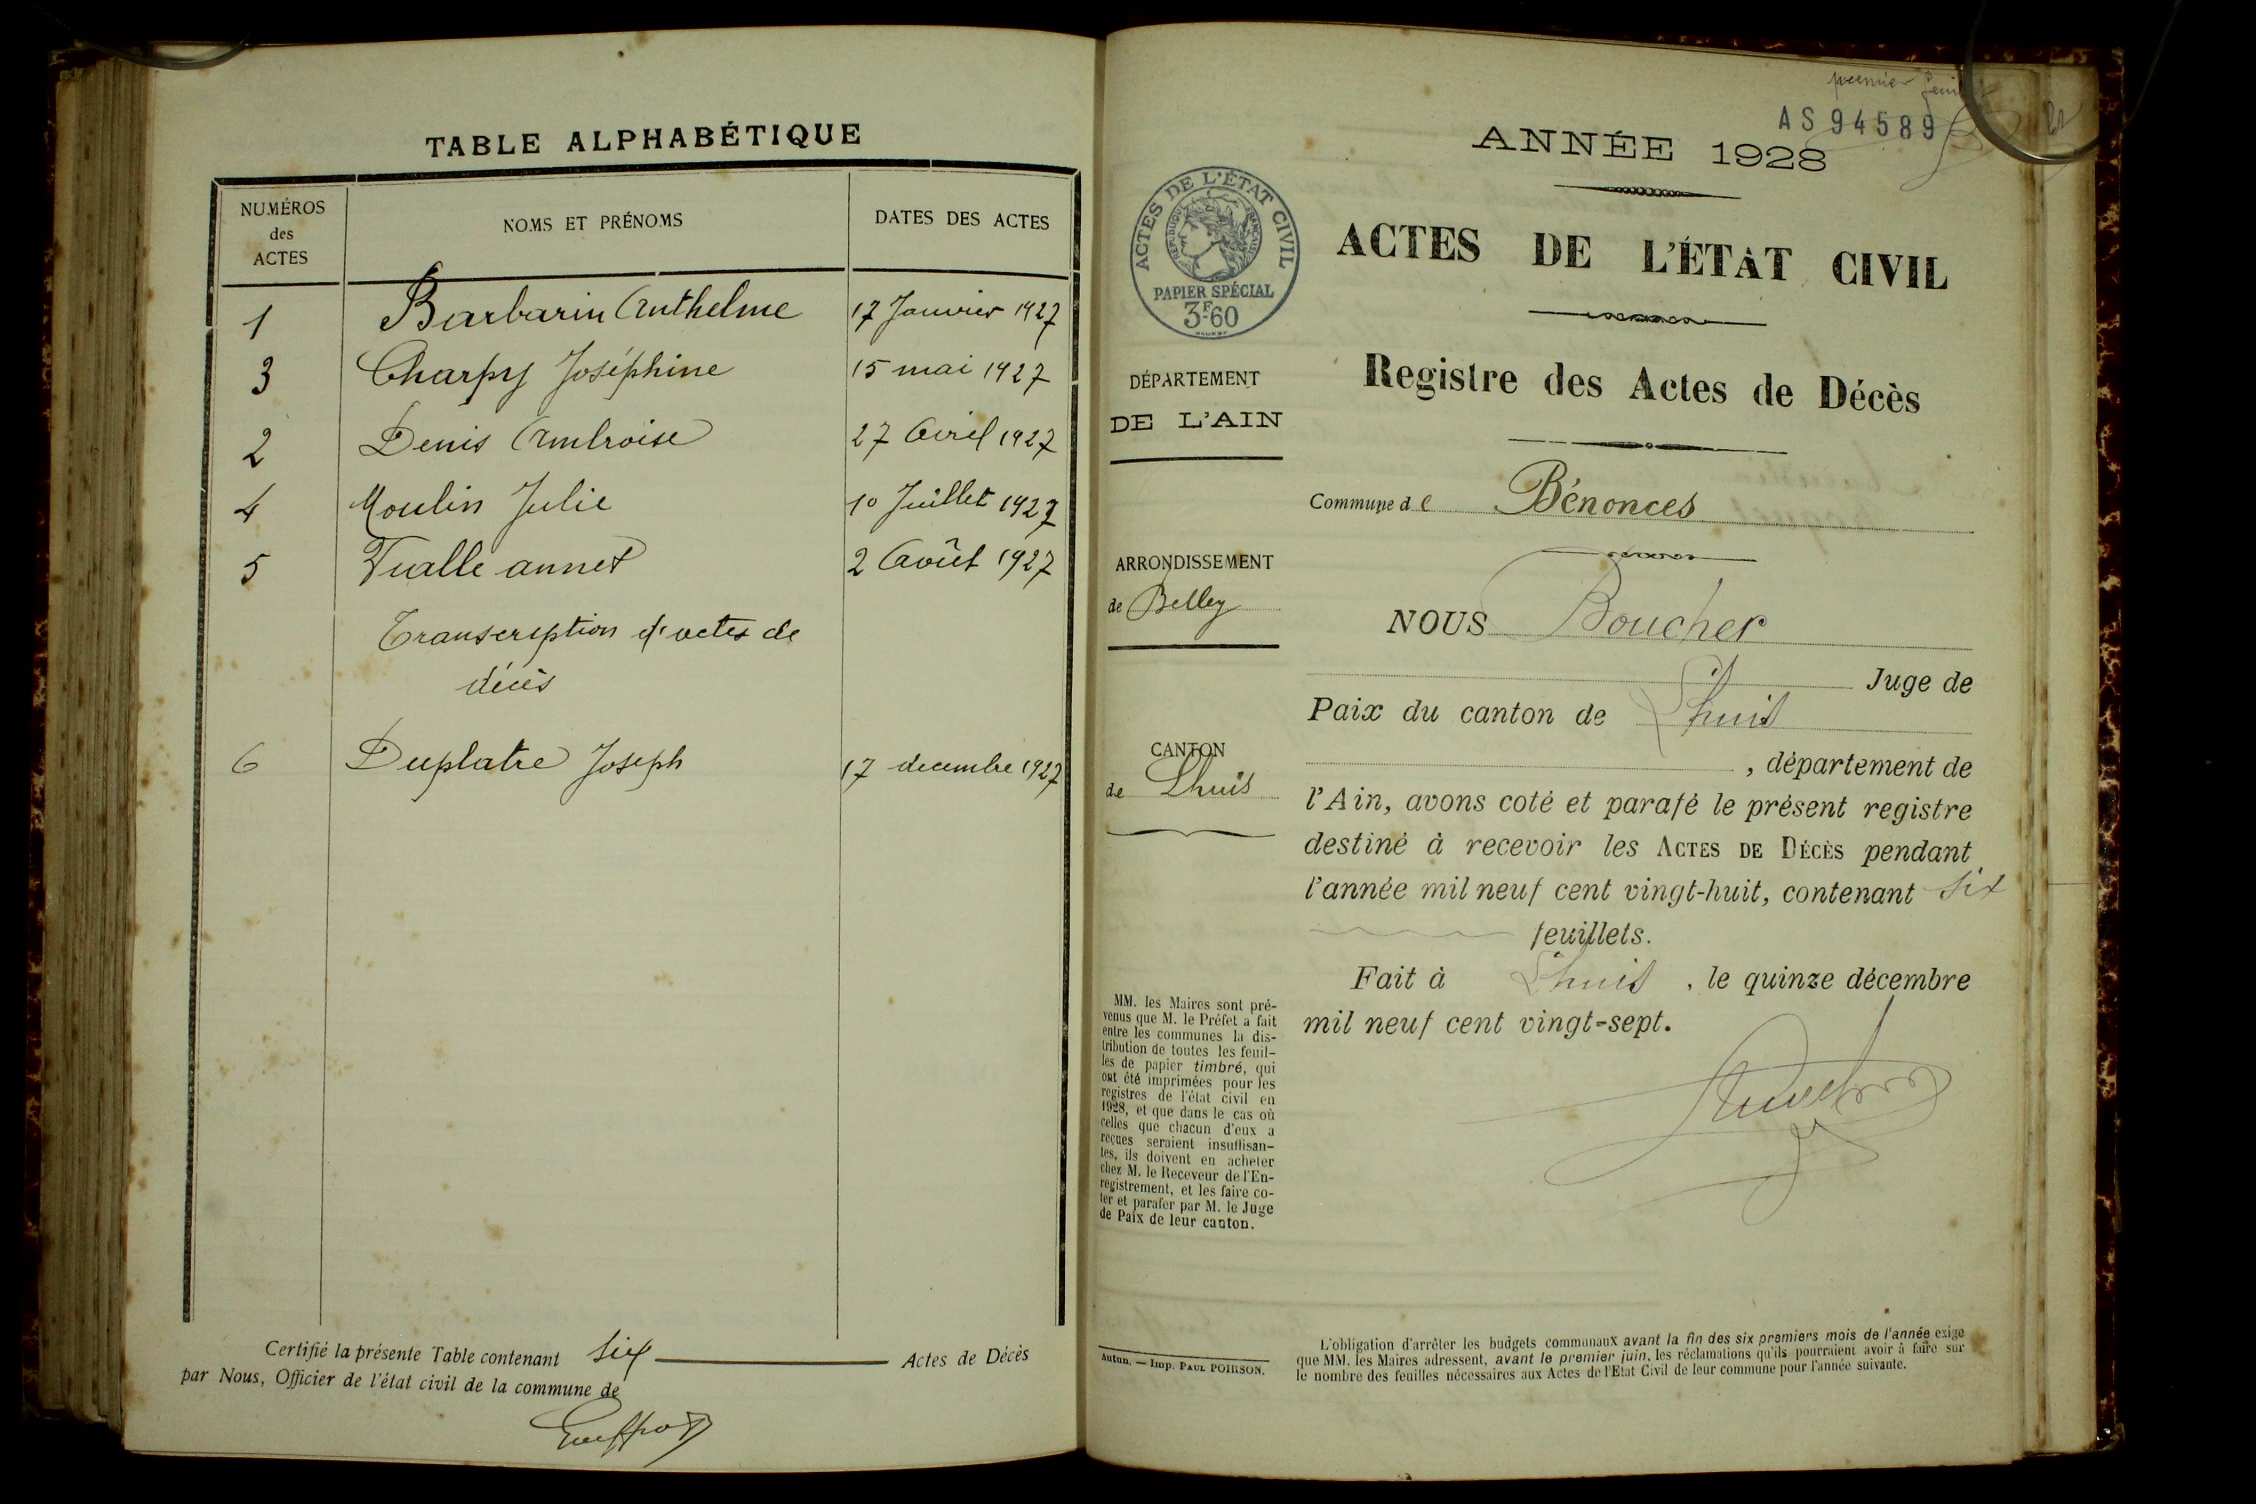 TABLE ALPHABÉTIQUE
NUMÉROS
des
ACTES
NOMS ET PRÉNOMS
DATES DES ACTES
1 Barbarin Anthelme 17 Janvier 1927
3 Charpy Joséphine 15 mai 1927
2 Denis Ambroise 27 Avril 1927
4 Moulin Julie 10 Juillet 1927
5 Vialle annet 2 Août 1927
Transcription d'actes de
décès
6 Duplatre Joseph 17 decembre 1927
Certifié la présente Table contenant six Actes de Décès
par Nous, Officier de l'état civil de la commune de
premier
AS 94589
ANNÉE 1928
ACTES DE L'ÉTAT CIVIL
RÉPUBLIQUE FRANÇAISE
PAPIER SPÉCIAL
3F60
ACTES DE L'ÉTAT CIVIL
Registre des Actes de Décès
DÉPARTEMENT
DE L'AIN
Commune de Bénonces
ARRONDISSEMENT
de Belley
NOUS Boucher
Juge de
Paix du canton de Lhuis
CANTON
de Lhuis
, département de
l'Ain, avons coté et parafé le présent registre
destiné à recevoir les ACTES DE DÉCÈS pendant
l'année mil neuf cent vingt-huit, contenant six
feuillets.
Fait à Lhuis, le quinze décembre
mil neuf cent vingt-sept.
MM. les Maires sont pré-
venus que M. le Préfet a fait
entre les communes la dis-
tribution de toutes les feuil-
les de papier timbré, qui
ont été imprimées pour les
registres de l'état civil en
1928, et que dans le cas où
celles que chacun d'eux a
reçues seraient insuffisan-
tes, ils doivent en acheter
chez M. le Receveur de l'En-
registrement, et les faire co-
ter et parafer par M. le Juge
de Paix de leur canton.
Autun. — Imp. PAUL POIRSON.
L'obligation d'arrêter les budgets communaux avant la fin des six premiers mois de l'année exige
que MM. les Maires adressent, avant le premier juin, les réclamations qu'ils pourraient avoir à faire sur
le nombre des feuilles nécessaires aux Actes de l'Etat Civil de leur commune pour l'année suivante.